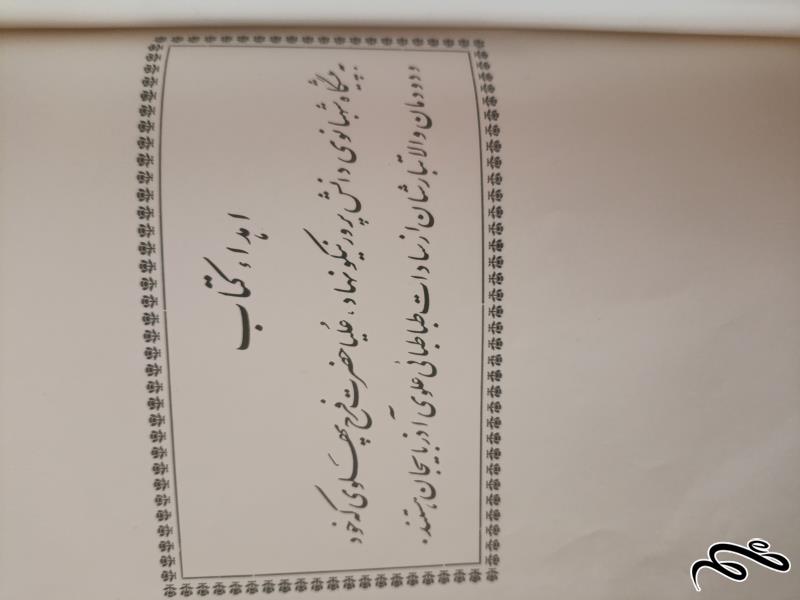 اهداء کتاب
به پیشگاه شهبانوی دانش پرور نیکو نهاد، علیا حضرت فرح پهلوی که خود
و دودمان والاتبارشان از سادات طباطبائی علوی آذربایجان هستند.